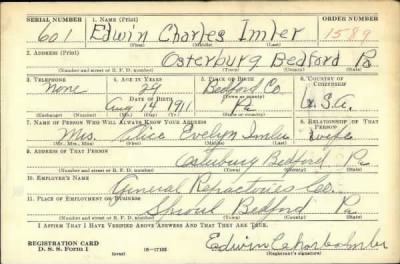 SERIAL NUMBER 1. NAME (Print) ORDER NUMBER
601 Edwin Charles Imler 1589
(First) (Middle) (Last)
2. ADDRESS (Print)
Osterburg Bedford Pa
(Number and street or R. F. D. number) (Town) (County) (State)
3. TELEPHONE 4. AGE IN YEARS 5. PLACE OF BIRTH 6. COUNTRY OF CITIZENSHIP
None 29 Bedford Co.
DATE OF BIRTH (Town or county)
Aug 14 1911 Pa U.S.A.
(Exchange) (Number) (Mo.) (Day) (Yr.) (State or country)
7. NAME OF PERSON WHO WILL ALWAYS KNOW YOUR ADDRESS 8. RELATIONSHIP OF THAT PERSON
Mrs. Alice Evelyn Imler wife
(Mr., Mrs., Miss) (First) (Middle) (Last)
9. ADDRESS OF THAT PERSON
Osterburg Bedford Pa
(Number and street or R. F. D. number) (Town) (County) (State)
10. EMPLOYER'S NAME
General Refractories Co.
11. PLACE OF EMPLOYMENT OR BUSINESS
Sproul Bedford Pa.
(Number and street or R. F. D. number) (Town) (County) (State)
I AFFIRM THAT I HAVE VERIFIED ABOVE ANSWERS AND THAT THEY ARE TRUE.
REGISTRATION CARD
D. S. S. Form 1 (over) Edwin Charles Imler
(Registrant's signature)